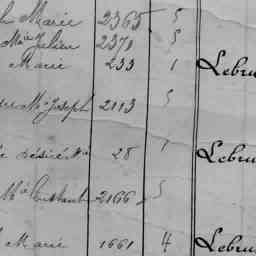 Marie 2365 5
Mie Julien 2371 5
Marie 233 1 Lebru
Me Joseph 2113 5
désiré Mie 28 1 Lebru
Mie Constant 2166 5
Marie 1661 4 Lebru